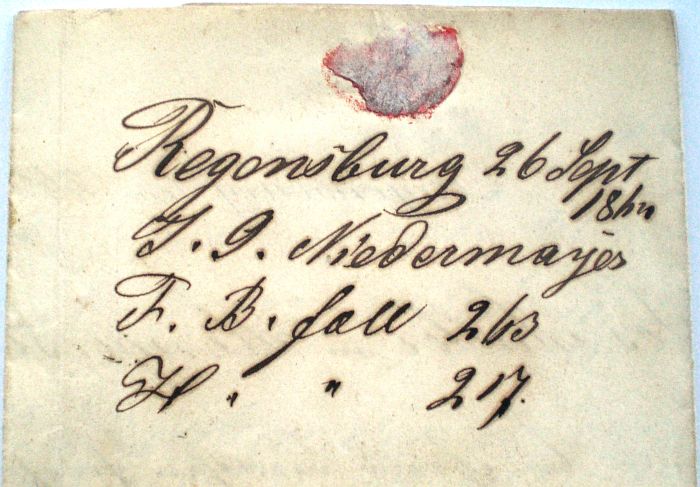 Regensburg 26 Sept
J. G. Niedermayer
F. B. fall 263
H. " " 217.